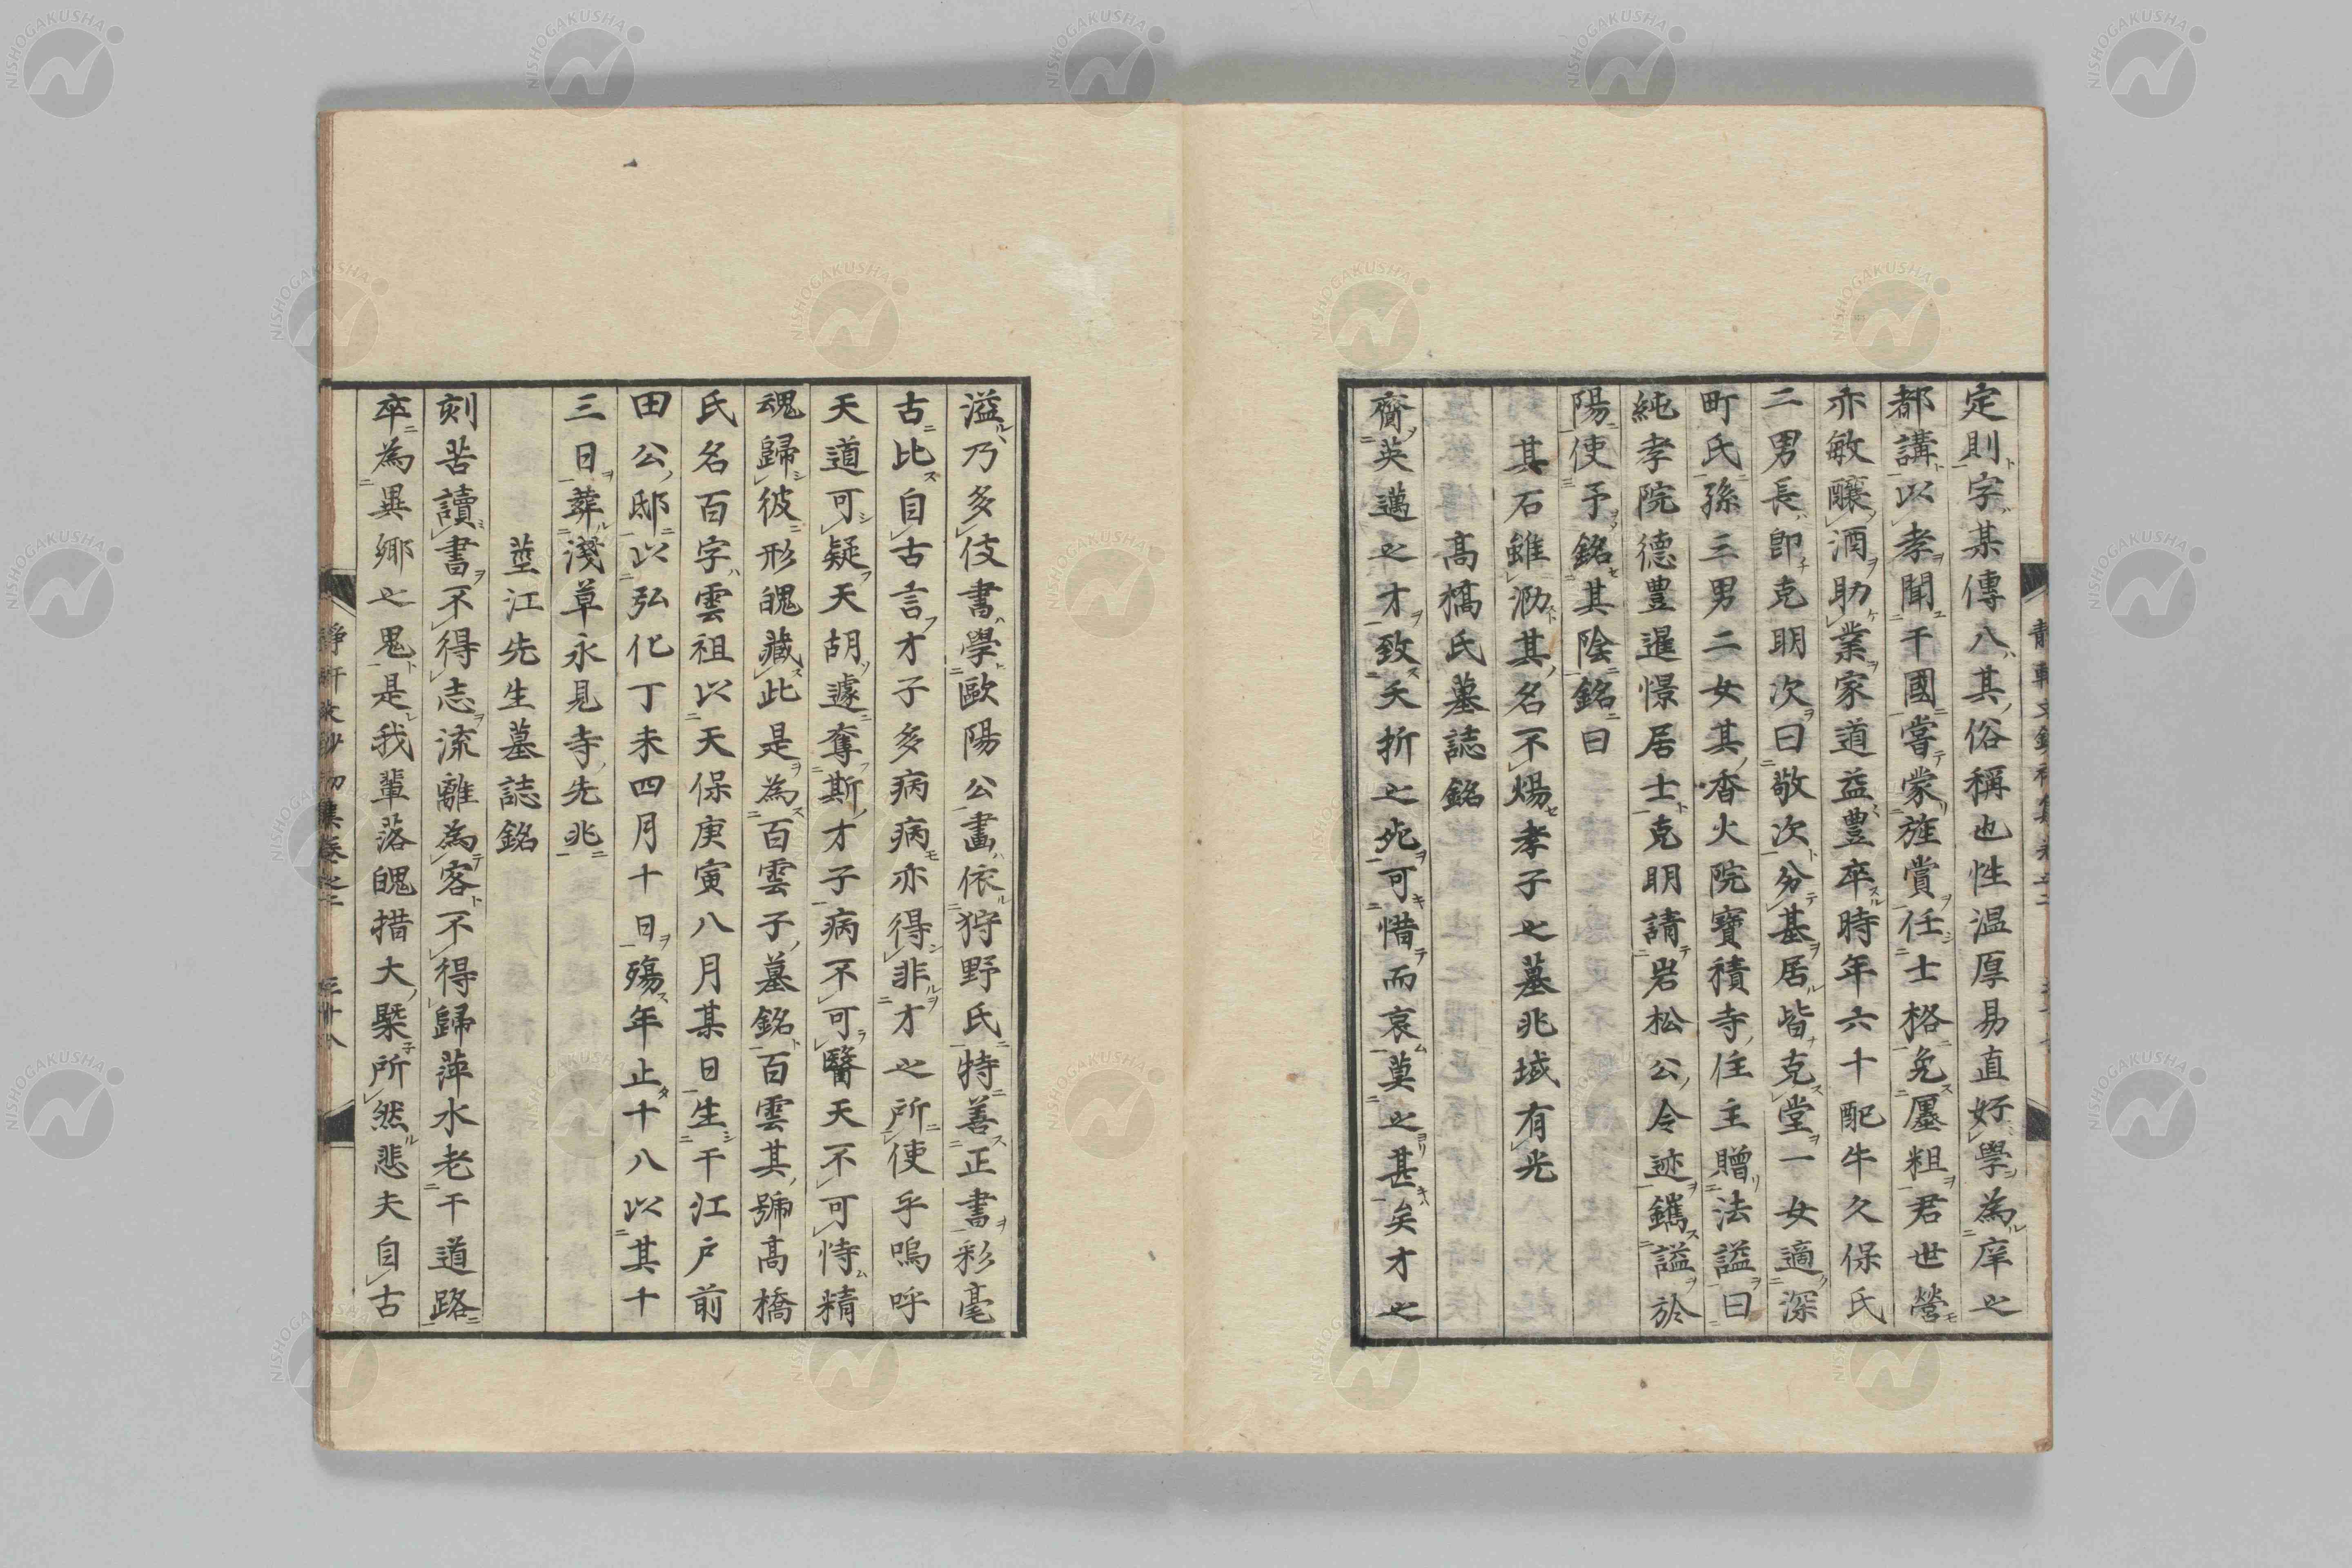 定則字某傳八其俗稱也性温厚易直好學為庠之
都講以孝聞于國嘗蒙旌賞任士格免廛粗君世營
亦敏釀酒助業家道益豊卒時年六十配牛久保氏
二男長即克明次曰敬次分基居皆克堂一女適深
町氏孫三男二女其香火院寶積寺住主贈法謚曰
純孝院德豊暹憬居士克明請岩松公令迹鐫謚於
陽使予銘其陰銘曰
其石雖泐其名不煬孝子之墓兆域有光
高橋氏墓誌銘
齎英邁之才致夭折之死可惜而哀莫之甚矣才之
溢乃多伎書學歐陽公畫依狩野氏特善正書彩毫
古比自古言才子多病病亦得非才之所使乎嗚呼
天道可疑天胡遽奪斯才子病不可醫天不可恃精
魂歸彼形魄藏此是為百雲子墓銘百雲其號高橋
氏名百字雲祖以天保庚寅八月某日生于江戸前
田公邸以弘化丁未四月十日殤年止十八以其十
三日葬淺草永見寺先兆
莖江先生墓誌銘
刻苦讀書不得志流離為客不得歸萍水老于道路
卒為異鄉之鬼是我輩落魄措大槩所然悲夫自古